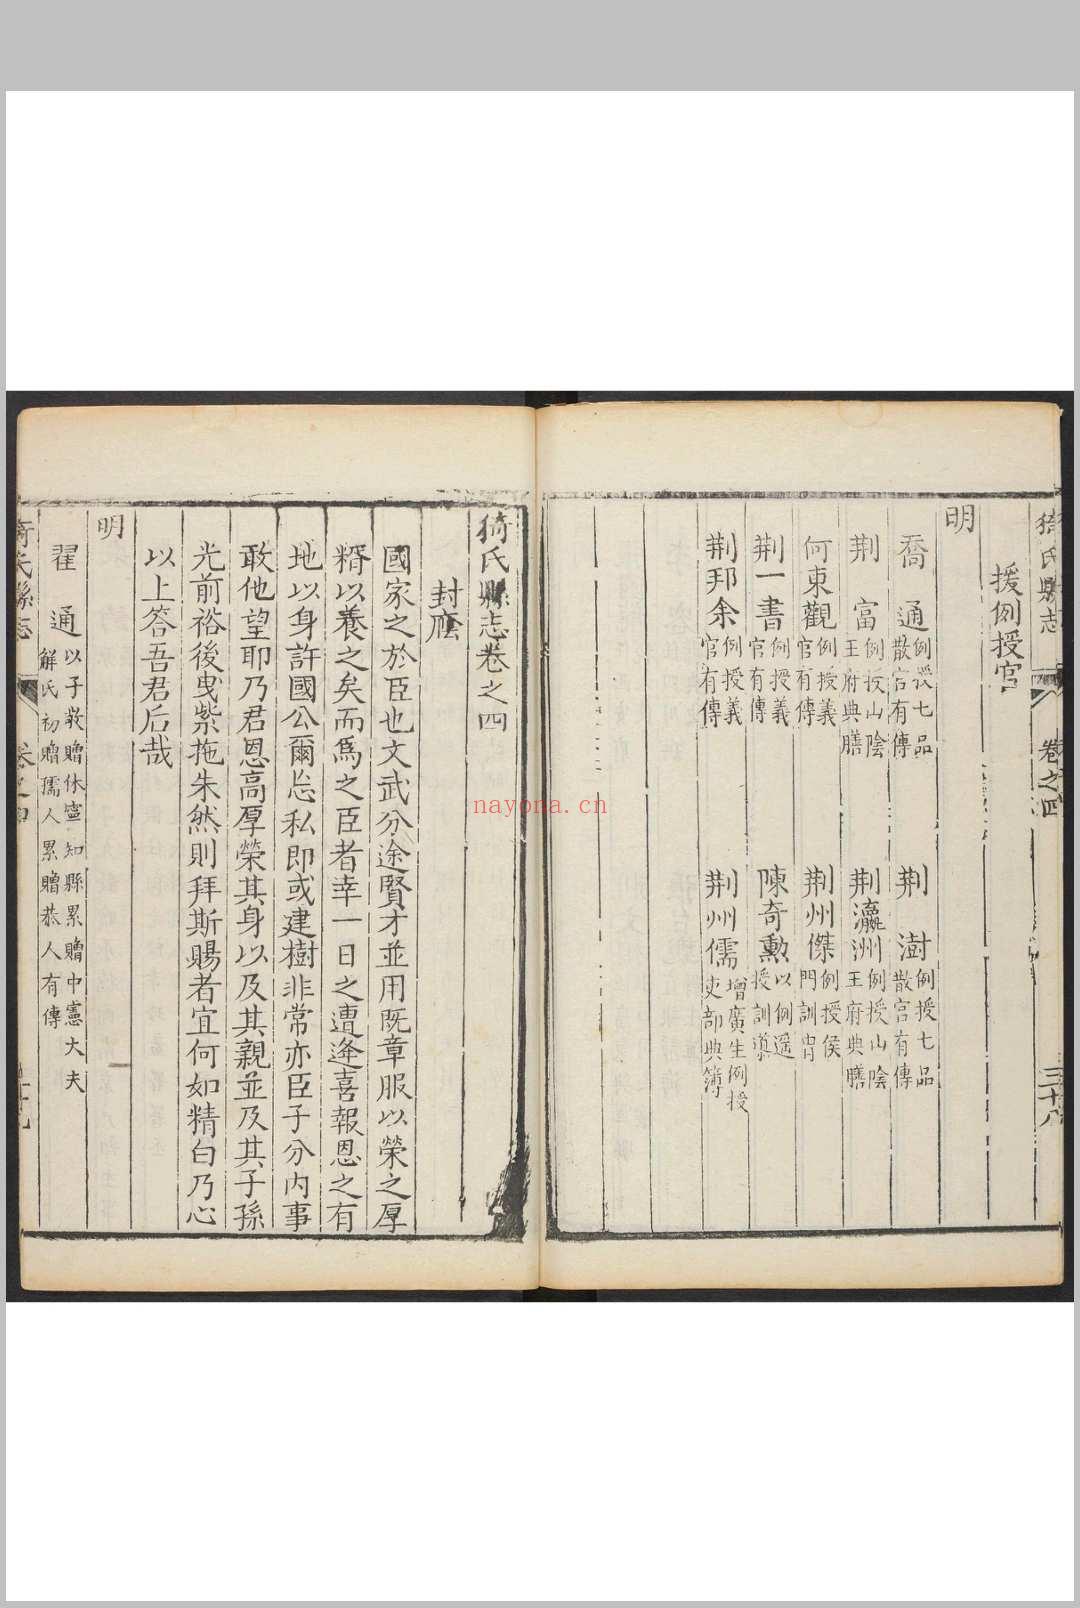 猗氏縣志
卷之四
三十八
援例授官
明
喬　通 例授七品散官有傳
荆　澍 例授七品散官有傳
荆　富 例授山陰王府典膳
荆瀛洲 例授山陰王府典膳
何東觀 例授義官有傳
荆州傑 例授侯門訓
荆一書 例授義官有傳
陳奇勳 以例遥授訓導
荆邦余 例授義官有傳
荆州儒 增廣生例授吏部典簿
猗氏縣志卷之四
封廕
國家之於臣也文武分途賢才並用既章服以榮之厚
糈以養之矣而爲之臣者幸一日之遭逢喜報恩之有
地以身許國公爾忘私即或建樹非常亦臣子分內事
敢他望耶乃君恩高厚榮其身以及其親並及其子孫
光前裕後曳紫拖朱然則拜斯賜者宜何如精白乃心
以上答吾君后哉
明
翟　通 以子嵌贈休寧知縣累贈中憲大夫
解氏初贈孺人累贈恭人有傳
猗氏縣志
卷之四
nayona.cn